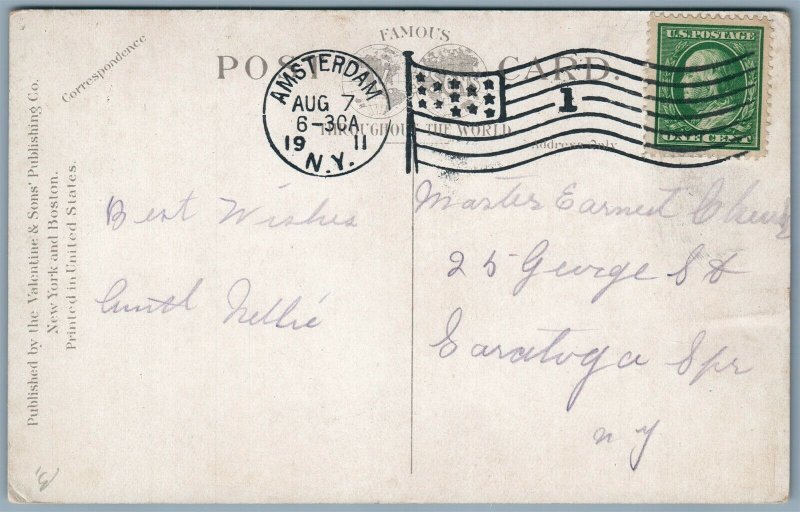 FAMOUS
POST CARD.
THROUGHOUT THE WORLD
Correspondence
Address Only
AMSTERDAM
AUG 7
6-30A
19 11
N.Y.
1
U.S. POSTAGE
ONE CENT
Published by the Valentine & Sons' Publishing Co.
New York and Boston.
Printed in United States.
Best Wishes
Aunt Nellie
Master Earnest
25 George St
Saratoga Spr
N Y